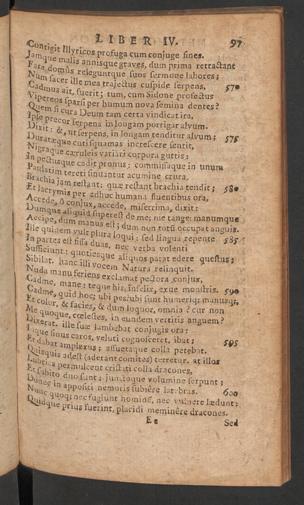 LIBER IV. 97
Contigit Illyricos profuga cum conjuge fines.
Jamque malis annisque graves, dum prima retractant
Fata domûs releguntque suos sermone labores;
Num sacer ille mea trajectus cuspide serpens, 570
Cadmus ait, fuerit; tum, cum Sidone profectus
Vipereos sparsi per humum nova semina dentes?
Quem si cura Deum tam certa vindicat ira,
Ipse precor serpens in longam porrigar alvum.
Dixit: &, ut serpens, in longam tenditur alvum; 575
Duratæque cuti squamas increscere sentit,
Nigraque cæruleis variari corpora guttis;
In pectusque cadit pronus: commissaque in unum
Paulatim tereti sinuantur acumine crura.
Brachia jam restant: quæ restant brachia tendit; 580
Et lacrymis per adhuc humana fluentibus ora,
Accede, ô conjux, accede, miserrima, dixit:
Dumque aliquid superest de me; me tange: manumque
Accipe, dum manus est; dum non totū occupat anguis.
Ille quidem vult plura loqui; sed lingua repente 585
In partes est fissa duas, nec verba volenti
Sufficiunt: quotiesque aliquos parat edere questus;
Sibilat. hanc illi vocem Natura relinquit.
Nuda manu feriens exclamat pectora conjux,
Cadme, mane: teque his, infelix, exue monstris. 590
Cadme, quid hoc; ubi pes; ubi sunt humeriq; manusq;
Et color, & facies, & dum loquor, omnia? cur non
Me quoque, cœlestes, in eundem vertitis anguem?
Dixerat. ille suæ lambebat conjugis ora:
Inque sinus caros, veluti cognosceret, ibat; 595
Et dabat amplexus; assuetaque colla petebat.
Quisquis adest (aderant comites) terretur. at illos
Lubrica permulcent cristati colla dracones,
Et subito duo sunt; junctoque volumine serpunt;
Donec in appositi nemoris subière latebras. 600
Nunc quoq; nec fugiunt hominē, nec vulnere lædunt:
Quidque prius fuerint, placidi meminêre dracones.
Ee Sed